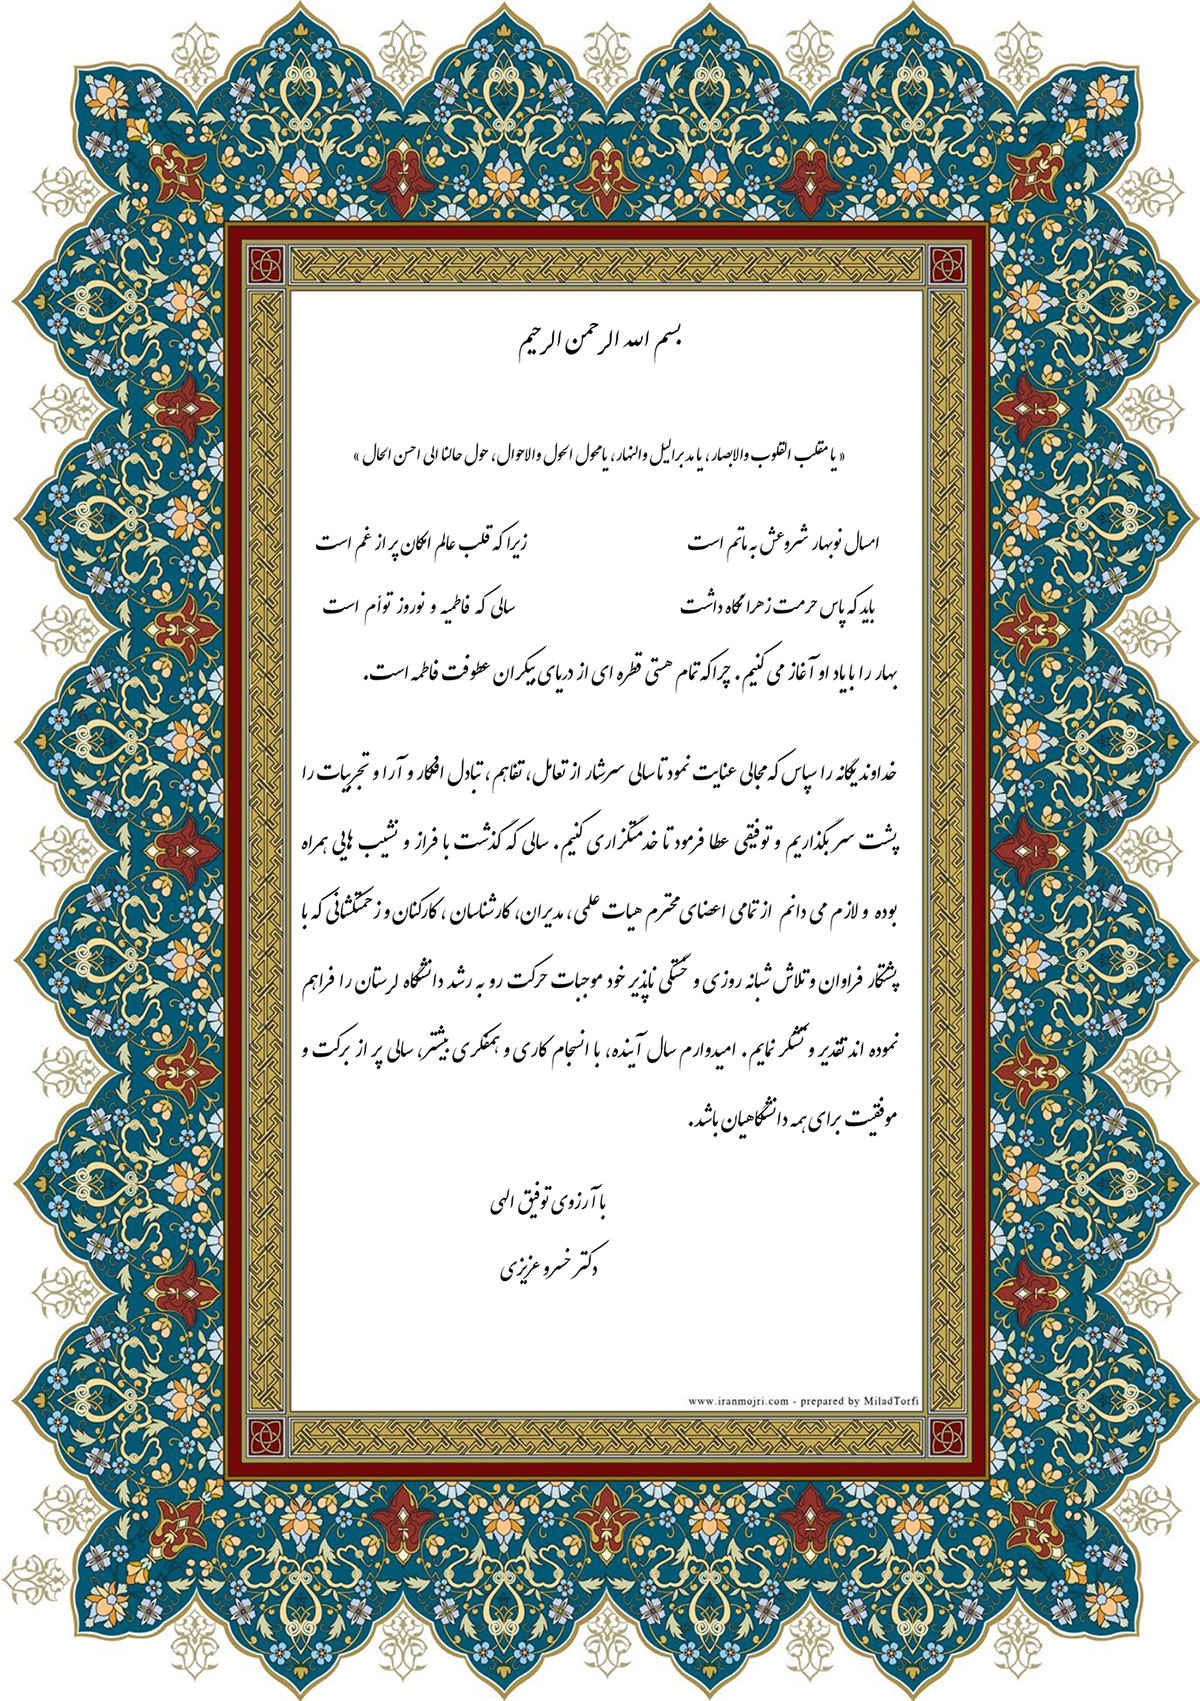 بسم الله الرحمن الرحیم
« یا مقلب القلوب والابصار، یا مدبرالیل والنهار، یامحول الحول والاحوال، حول حالنا الی احسن الحال »
امسال نوبهار شروعش به ماتم است زیرا که قلب عالم امکان پر از غم است
باید که پاس حرمت زهرا نگاه داشت سالی که فاطمیه و نوروز توأم است
بهار را با یاد او آغاز می کنیم. چراکه تمام هستی قطره ای از دریای بیکران عطوفت فاطمه است.
خداوند یگانه را سپاس که مجالی عنایت نمود تا سالی سرشار از تعامل، تفاهم، تبادل افکار و آرا و تجربیات را
پشت سر بگذاریم و توفیقی عطا فرمود تا خدمتگزاری کنیم. سالی که گذشت با فراز و نشیب هایی همراه
بوده و لازم می دانم از تمامی اعضای محترم هیات علمی، مدیران، کارشناسان، کارکنان و زحمتکشانی که با
پشتکار فراوان و تلاش شبانه روزی و خستگی ناپذیر خود موجبات حرکت رو به رشد دانشگاه لرستان را فراهم
نموده اند تقدیر و تشکر نمایم. امیدوارم سال آینده، با انسجام کاری و همفکری بیشتر، سالی پر از برکت و
موفقیت برای همه دانشگاهیان باشد.
با آرزوی توفیق الهی
دکتر خسرو عزیزی
www.iranmojri.com - prepared by MiladTorfi